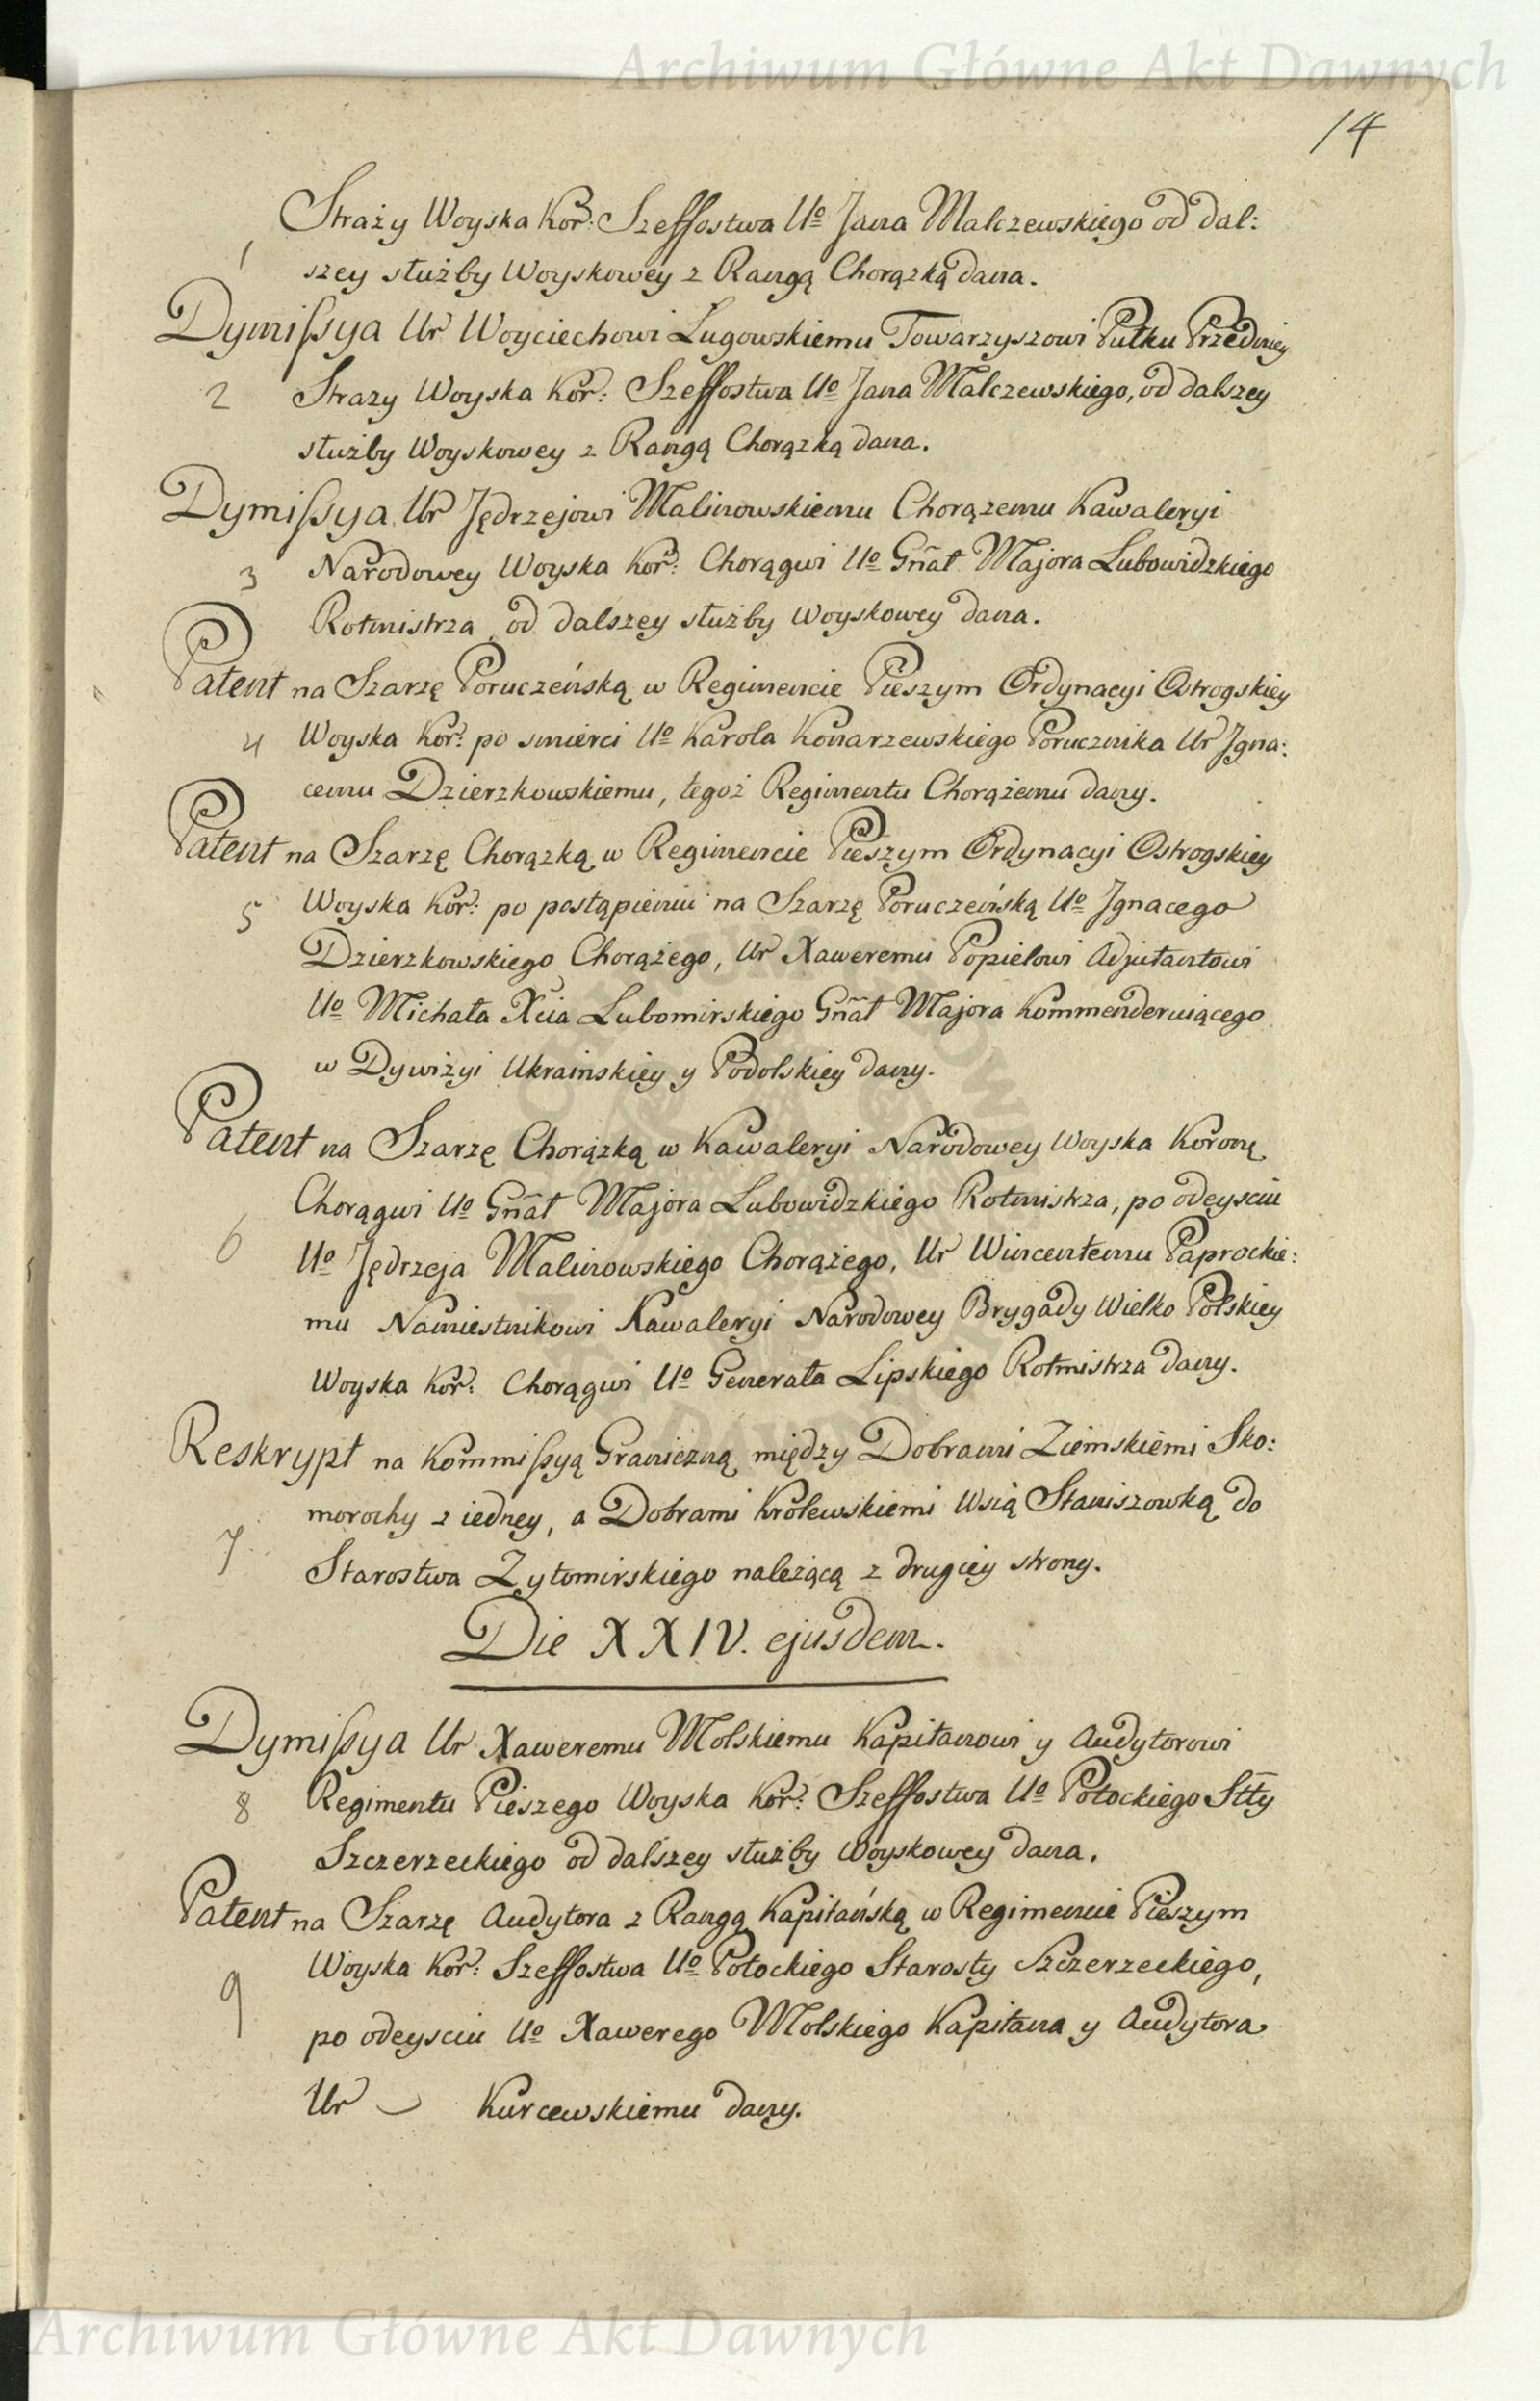 Archiwum Główne Akt Dawnych
14
Straży Woyska Kor: Szeffostwa Uo Jana Malczewskiego od dal:
1 szey służby Woyskowey z Rangą Chorązką dana.
Dymissya Ur Woyciechowi Ługowskiemu Towarzyszowi Pułku Przedniey
2 Strazy Woyska Kor: Szeffostwa Uo Jana Malczewskiego, od dalszey
służby Woyskowey z Rangą Chorązką dana.
Dymissya Ur Jędrzejowi Malinowskiemu Chorązemu Kawaleryi
3 Narodowey Woyska Kor: Chorągwi Uo Gñał Majora Lubowidzkiego
Rotmistrza, od dalszey służby Woyskowey dana.
Patent na Szarzę Poruczeńską w Regimencie Pieszym Ordynacyi Ostrogskiey
4 Woyska Kor: po smierci Uo Karola Konarzewskiego Porucznika Ur Jgna:
cemu Dzierzkowskiemu, tegoż Regimentu Chorążemu dany.
Patent na Szarzę Chorązką w Regimencie Pieszym Ordynacyi Ostrogskiey
5 Woyska Kor: po postąpieniu na Szarzę Poruczeńską Uo Jgnacego
Dzierzkowskiego Chorążego, Ur Xaweremu Popielowi Adjutantowi
Uo Michała Xcia Lubomirskiego Gñał Majora Kommenderuiącego
w Dywizyi Ukrainskiey y Podolskiey dany.
Patent na Szarzę Chorązką w Kawaleryi Narodowey Woyska Koronę
Chorągwi Uo Gñał Majora Lubowidzkiego Rotmistrza, po odeysciu
6 Uo Jędrzeja Malinowskiego Chorążego, Ur Wincentemu Paprockie:
mu Namiestnikowi Kawaleryi Narodowey Brygady Wielko Polskiey
Woyska Kor: Chorągwi Uo Generała Lipskiego Rotmistrza dany.
Reskrypt na Kommissyą Graniczną między Dobrami Ziemskiemi Sko:
morochy z iedney, a Dobrami Królewskiemi Wsią Staniszowką do
7 Starostwa Zytomirskiego należącą z drugiey strony.
Die XXIV. ejusdem.
Dymissya Ur Xaweremu Molskiemu Kapitanowi y Audytorowi
8 Regimentu Pieszego Woyska Kor: Szeffostwa Uo Potockiego Stty
Szczerzeckiego od dalszey służby Woyskowey dana.
Patent na Szarzę Audytora z Rangą Kapitańską w Regimencie Pieszym
Woyska Kor: Szeffostwa Uo Potockiego Starosty Szczerzeckiego,
9 po odeysciu Uo Xawerego Molskiego Kapitana y Audytora
Ur Kurcewskiemu dany.
Archiwum Główne Akt Dawnych